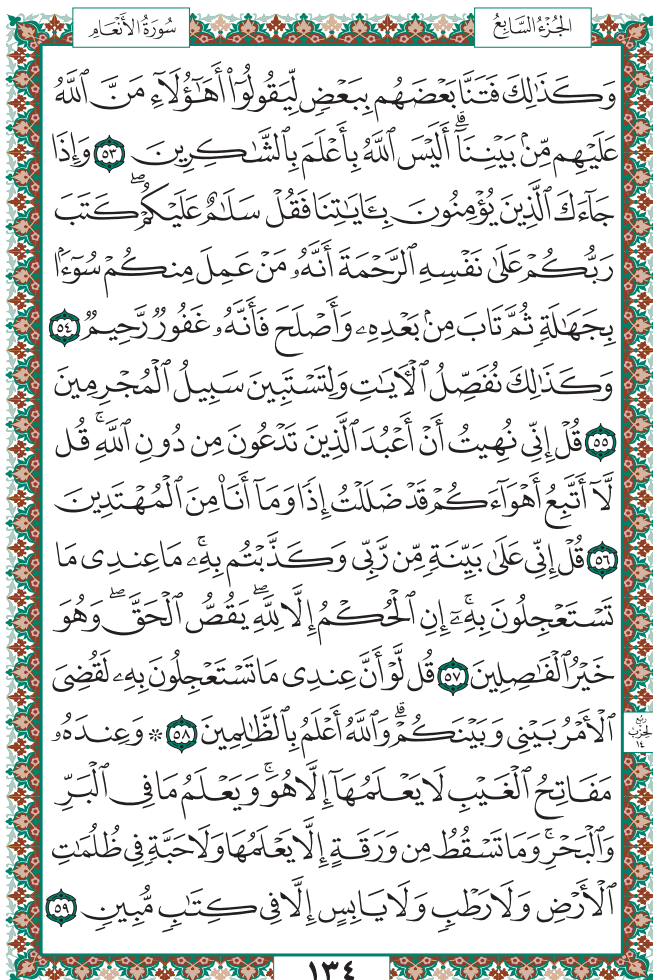 الجُزْءُ السَّابِعُ
سُورَةُ الأَنْعَام
وَكَذَٰلِكَ فَتَنَّا بَعْضَهُم بِبَعْضٍ لِّيَقُولُوٓا۟ أَهَـٰٓؤُلَآءِ مَنَّ ٱللَّهُ
عَلَيْهِم مِّنۢ بَيْنِنَآ ۗ أَلَيْسَ ٱللَّهُ بِأَعْلَمَ بِٱلشَّـٰكِرِينَ ٥٣ وَإِذَا
جَآءَكَ ٱلَّذِينَ يُؤْمِنُونَ بِـَٔايَـٰتِنَا فَقُلْ سَلَـٰمٌ عَلَيْكُمْ ۖ كَتَبَ
رَبُّكُمْ عَلَىٰ نَفْسِهِ ٱلرَّحْمَةَ أَنَّهُۥ مَنْ عَمِلَ مِنكُمْ سُوٓءًۢا
بِجَهَـٰلَةٍ ثُمَّ تَابَ مِنۢ بَعْدِهِۦ وَأَصْلَحَ فَأَنَّهُۥ غَفُورٌ رَّحِيمٌ ٥٤
وَكَذَٰلِكَ نُفَصِّلُ ٱلْـَٔايَـٰتِ وَلِتَسْتَبِينَ سَبِيلُ ٱلْمُجْرِمِينَ
٥٥ قُلْ إِنِّى نُهِيتُ أَنْ أَعْبُدَ ٱلَّذِينَ تَدْعُونَ مِن دُونِ ٱللَّهِ ۚ قُل
لَّآ أَتَّبِعُ أَهْوَآءَكُمْ ۙ قَدْ ضَلَلْتُ إِذًا وَمَآ أَنَا۠ مِنَ ٱلْمُهْتَدِينَ
٥٦ قُلْ إِنِّى عَلَىٰ بَيِّنَةٍ مِّن رَّبِّى وَكَذَّبْتُم بِهِۦ ۚ مَا عِندِى مَا
تَسْتَعْجِلُونَ بِهِۦٓ ۚ إِنِ ٱلْحُكْمُ إِلَّا لِلَّهِ ۖ يَقُصُّ ٱلْحَقَّ ۖ وَهُوَ
خَيْرُ ٱلْفَـٰصِلِينَ ٥٧ قُل لَّوْ أَنَّ عِندِى مَا تَسْتَعْجِلُونَ بِهِۦ لَقُضِىَ
ٱلْأَمْرُ بَيْنِى وَبَيْنَكُمْ ۗ وَٱللَّهُ أَعْلَمُ بِٱلظَّـٰلِمِينَ ٥٨ ۞ وَعِندَهُۥ
رُبْع الحِزْب ١٤
مَفَاتِحُ ٱلْغَيْبِ لَا يَعْلَمُهَآ إِلَّا هُوَ ۚ وَيَعْلَمُ مَا فِى ٱلْبَرِّ
وَٱلْبَحْرِ ۚ وَمَا تَسْقُطُ مِن وَرَقَةٍ إِلَّا يَعْلَمُهَا وَلَا حَبَّةٍ فِى ظُلُمَـٰتِ
ٱلْأَرْضِ وَلَا رَطْبٍ وَلَا يَابِسٍ إِلَّا فِى كِتَـٰبٍ مُّبِينٍ ٥٩
١٣٤